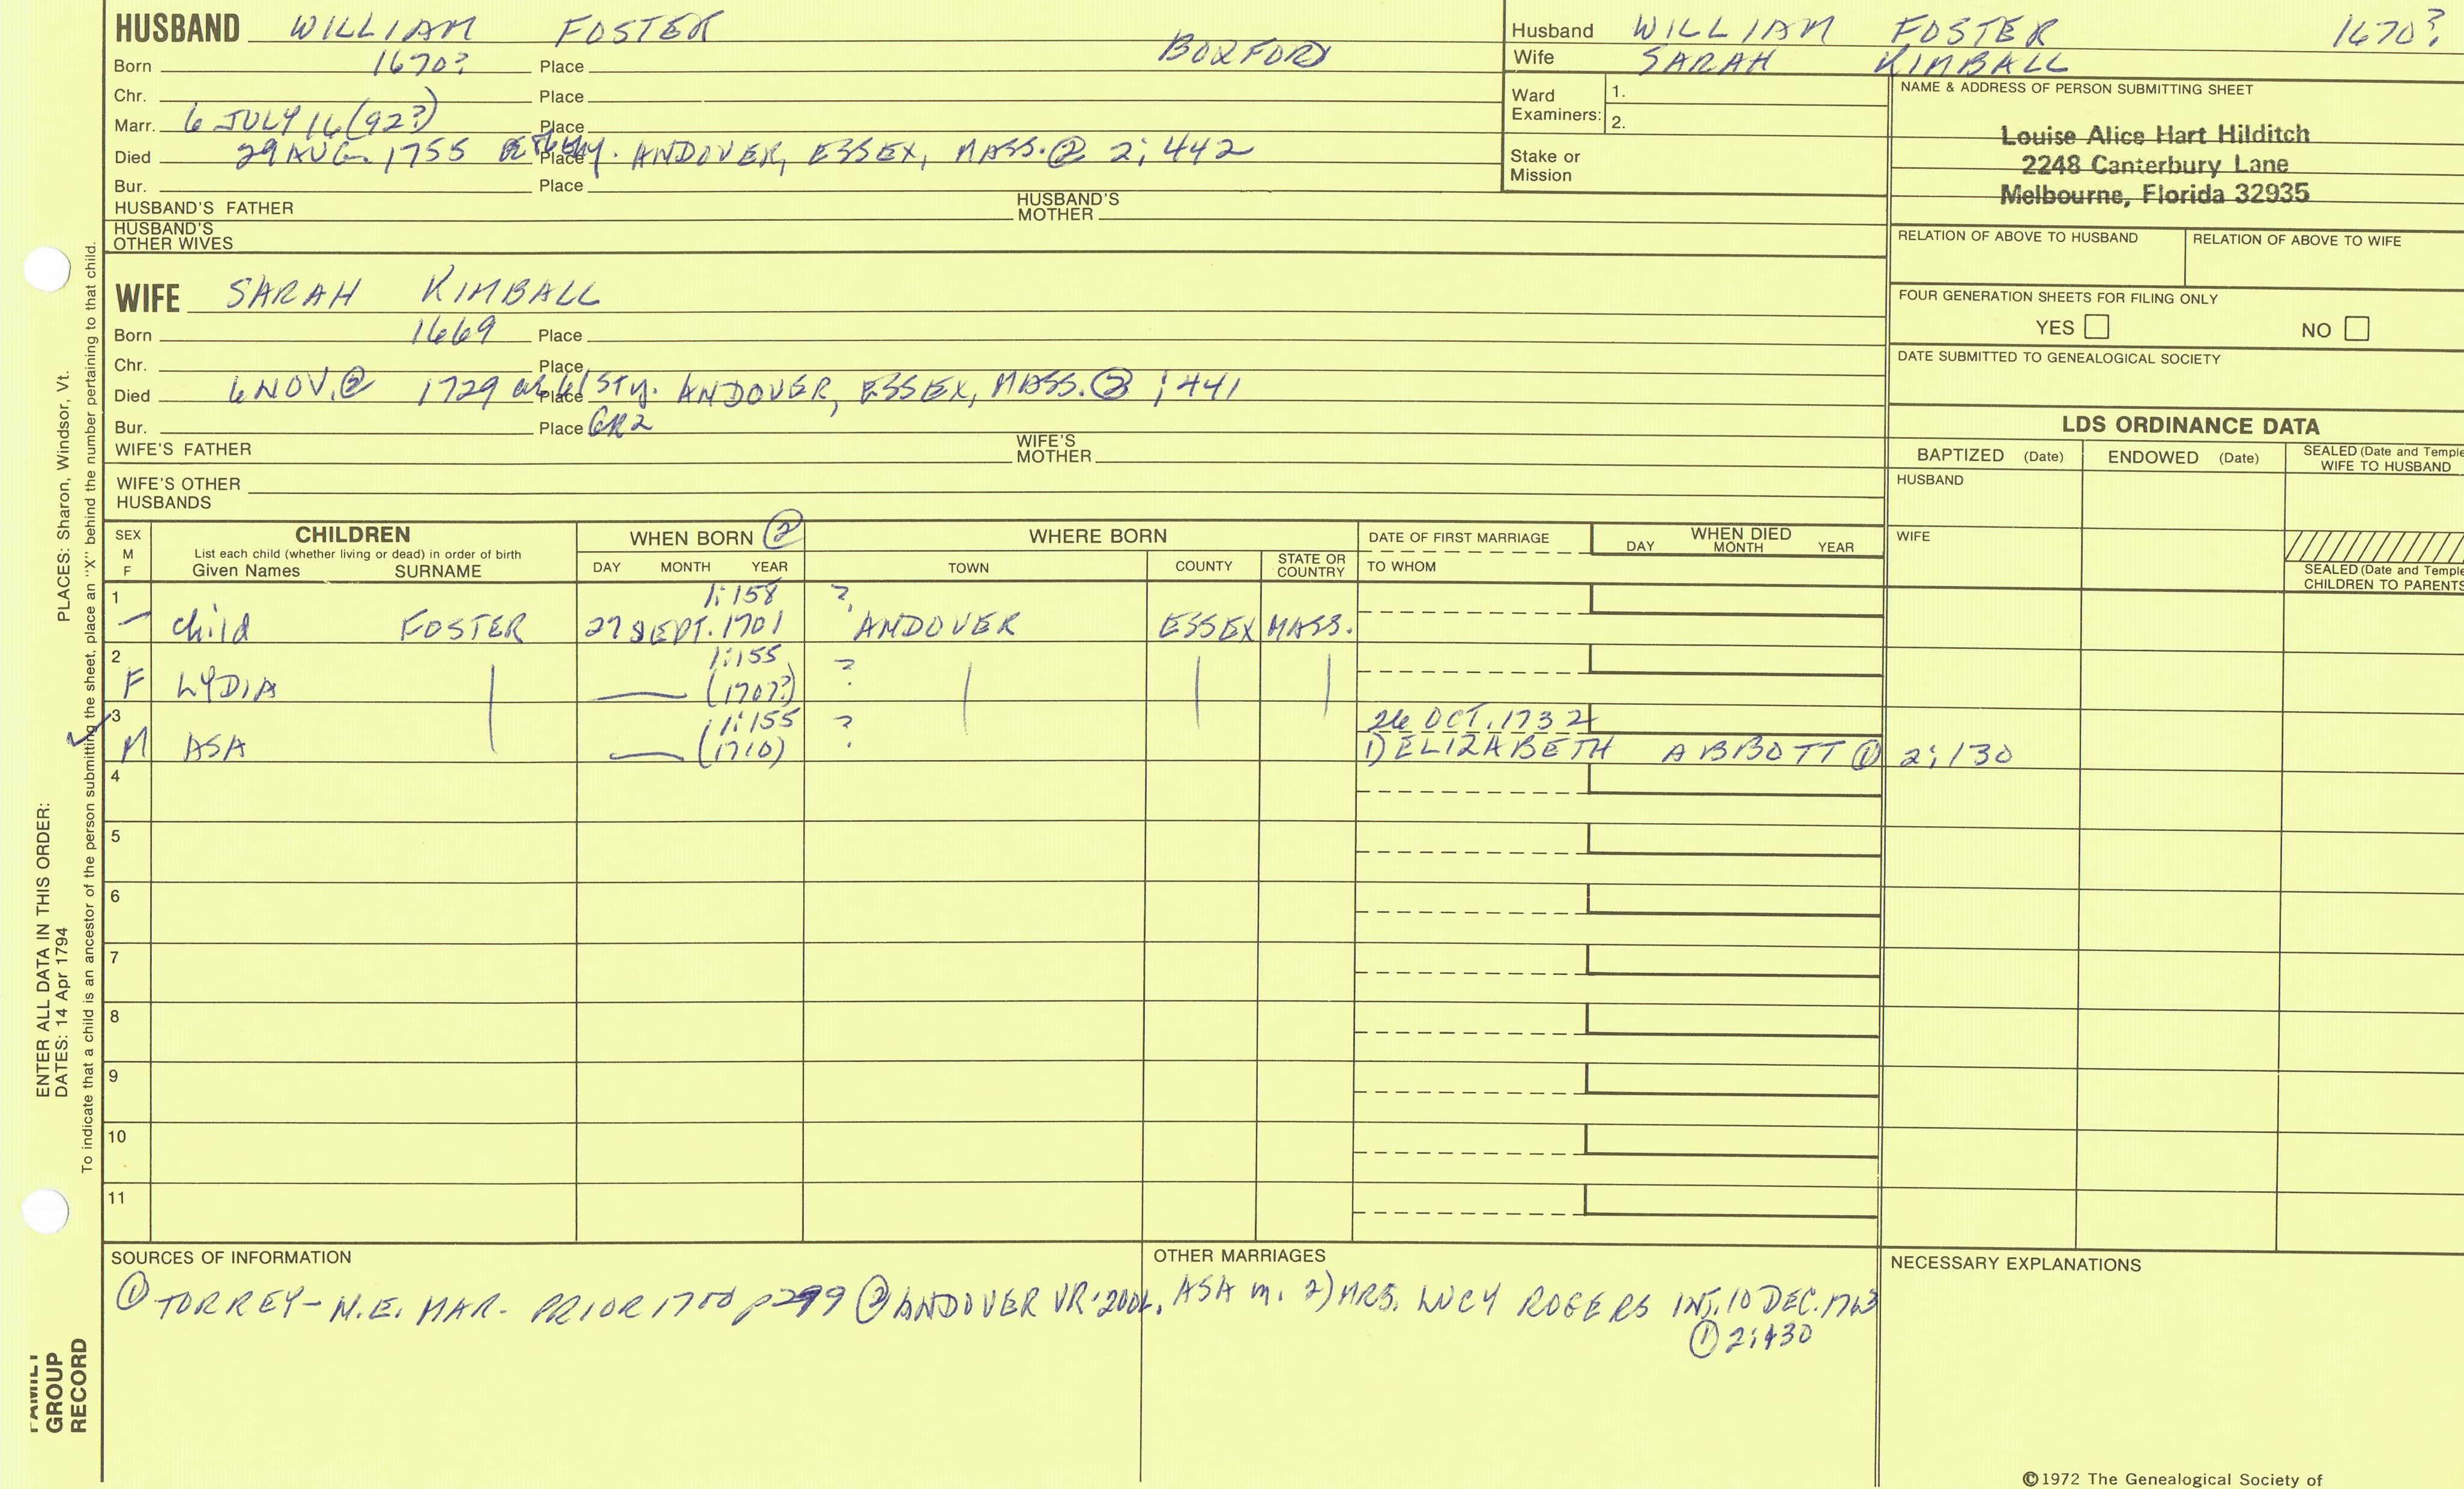 HUSBAND WILLIAM FOSTER
Born 1670? Place BOXFORD
Chr. Place
Marr. 6 JULY 16(92?) Place
Died 29 AUG. 1755 Place ANDOVER, ESSEX, MASS. ② 2; 442
Bur. Place
HUSBAND'S FATHER HUSBAND'S MOTHER
HUSBAND'S OTHER WIVES
WIFE SARAH KIMBALL
Born 1669 Place
Chr. Place
Died 6 NOV. ② 1729 Place ANDOVER, ESSEX, MASS. ② ; 441
Bur. Place GR2
WIFE'S FATHER WIFE'S MOTHER
WIFE'S OTHER HUSBANDS
Husband WILLIAM FOSTER 1670?
Wife SARAH KIMBALL
Ward Examiners: 1.
2.
Stake or Mission
NAME & ADDRESS OF PERSON SUBMITTING SHEET
Louise Alice Hart Hilditch
2248 Canterbury Lane
Melbourne, Florida 32935
RELATION OF ABOVE TO HUSBAND RELATION OF ABOVE TO WIFE
FOUR GENERATION SHEETS FOR FILING ONLY
YES NO
DATE SUBMITTED TO GENEALOGICAL SOCIETY
LDS ORDINANCE DATA
BAPTIZED (Date) ENDOWED (Date) SEALED (Date and Temple
WIFE TO HUSBAND
HUSBAND
WIFE
SEALED (Date and Temple
CHILDREN TO PARENTS
SEX M F CHILDREN WHEN BORN ② WHERE BORN DATE OF FIRST MARRIAGE WHEN DIED
List each child (whether living or dead) in order of birth
Given Names SURNAME DAY MONTH YEAR TOWN COUNTY STATE OR COUNTRY TO WHOM DAY MONTH YEAR
1 1:158 ?
— child FOSTER 27 SEPT. 1701 ANDOVER ESSEX MASS.
2 1:155 ?
F LYDIA | — (1707?) | | |
3 1:155 ? 26 OCT. 1732
M ASA — (1710) 1) ELIZABETH ABBOTT ① 2; 130
4
5
6
7
8
9
10
11
SOURCES OF INFORMATION
① TORREY - N.E. MAR. PRIOR 1700 p299 ② ANDOVER VR:
OTHER MARRIAGES
ASA m. 2) MRS. LUCY ROGERS INT. 10 DEC. 1763
① 2;130
NECESSARY EXPLANATIONS
©1972 The Genealogical Society of
PLACES: Sharon, Windsor, Vt.
ENTER ALL DATA IN THIS ORDER:
DATES: 14 Apr 1794
To indicate that a child is an ancestor of the person submitting the sheet, place an "X" behind the number pertaining to that child.
FAMILY
GROUP
RECORD